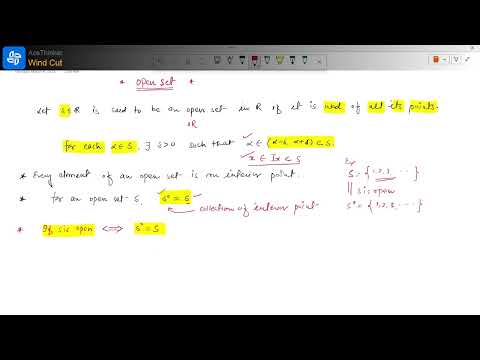 AceThinker
Wind Cut
* open set *
Let S ⊆ R is said to be an open set in R if it is nbd of all its points.
OR
for each α ∈ S, ∃ δ>0 such that α ∈ (α-δ, α+δ) ⊂ S.
x ∈ Ix ⊂ S
* Every element of an open set is an interior point.
* for an open set S, S° = S
collection of interior point
* If S is open ⟺ S° = S
S = {1,2,3, ....}
S is open
S° = {1,2,3, ....}